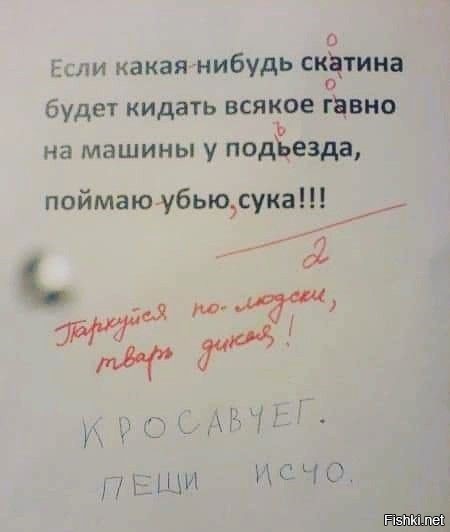 о
Если какая-нибудь скатина
о
будет кидать всякое гавно
ъ
на машины у подьезда,
поймаю-убью, сука!!!
2
Паркуйся по-людски,
тварь дикая!
КРОСАВЧЕГ.
ПЕШИ ИСЧО.
Fishki.net